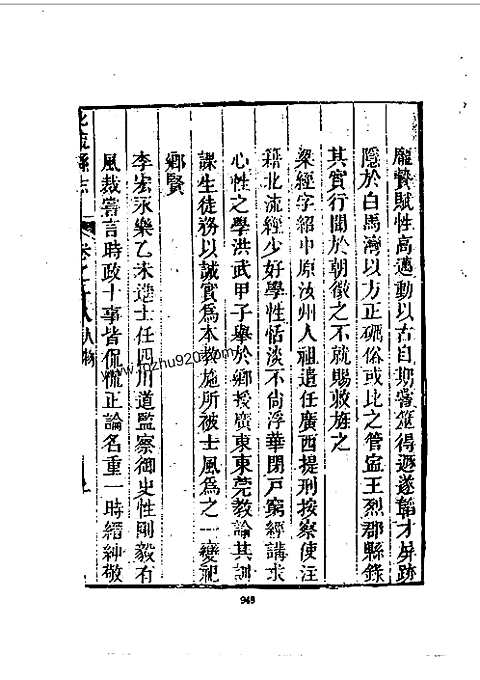 龐贄賦性高邁動以古自期嘗筮得遯遂韜才屏跡
隱於白馬灣以方正礪俗或比之管寍王烈郡縣錄
其實行聞於朝徵之不就賜敕旌之
梁經字紹中原汝州人祖遣任廣西提刑按察使注
籍北流經少好學性恬淡不尙浮華閉戸窮經講求
心性之學洪武甲子舉於鄉授廣東東莞教諭其訓
課生徒務以誠實爲本教施所被士風爲之一變祀
鄉賢
李宏永樂乙未進士任四川道監察御史性剛毅有
風裁嘗言時政十事皆侃侃正論名重一時縉紳敬
北流縣志
人物
www.inzhu920.com
943